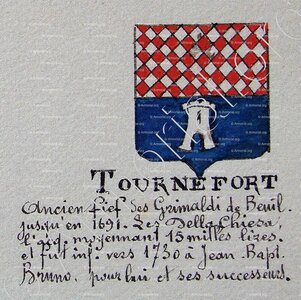 TOURNEFORT
Ancien fief des Grimaldi de Beuil.
jusqu'en 1691. Les Della Chiesa,
l'acq. moyennant 15 milles lires.
et fut inf. vers 1730 à Jean Bapt.
Bruno, pour lui et ses successeurs.